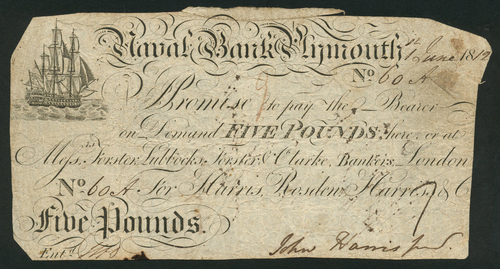 Naval Bank Plymouth 1st June 1812
No. 60 A
I Promise to pay the Bearer
on Demand FIVE POUNDS, here or at
Messrs. Forster, Lubbocks, Forster & Clarke, Bankers, London
No. 60 A For Harris, Rosdew, Harris & Co
Five Pounds.
Entd. John Harris Junr.